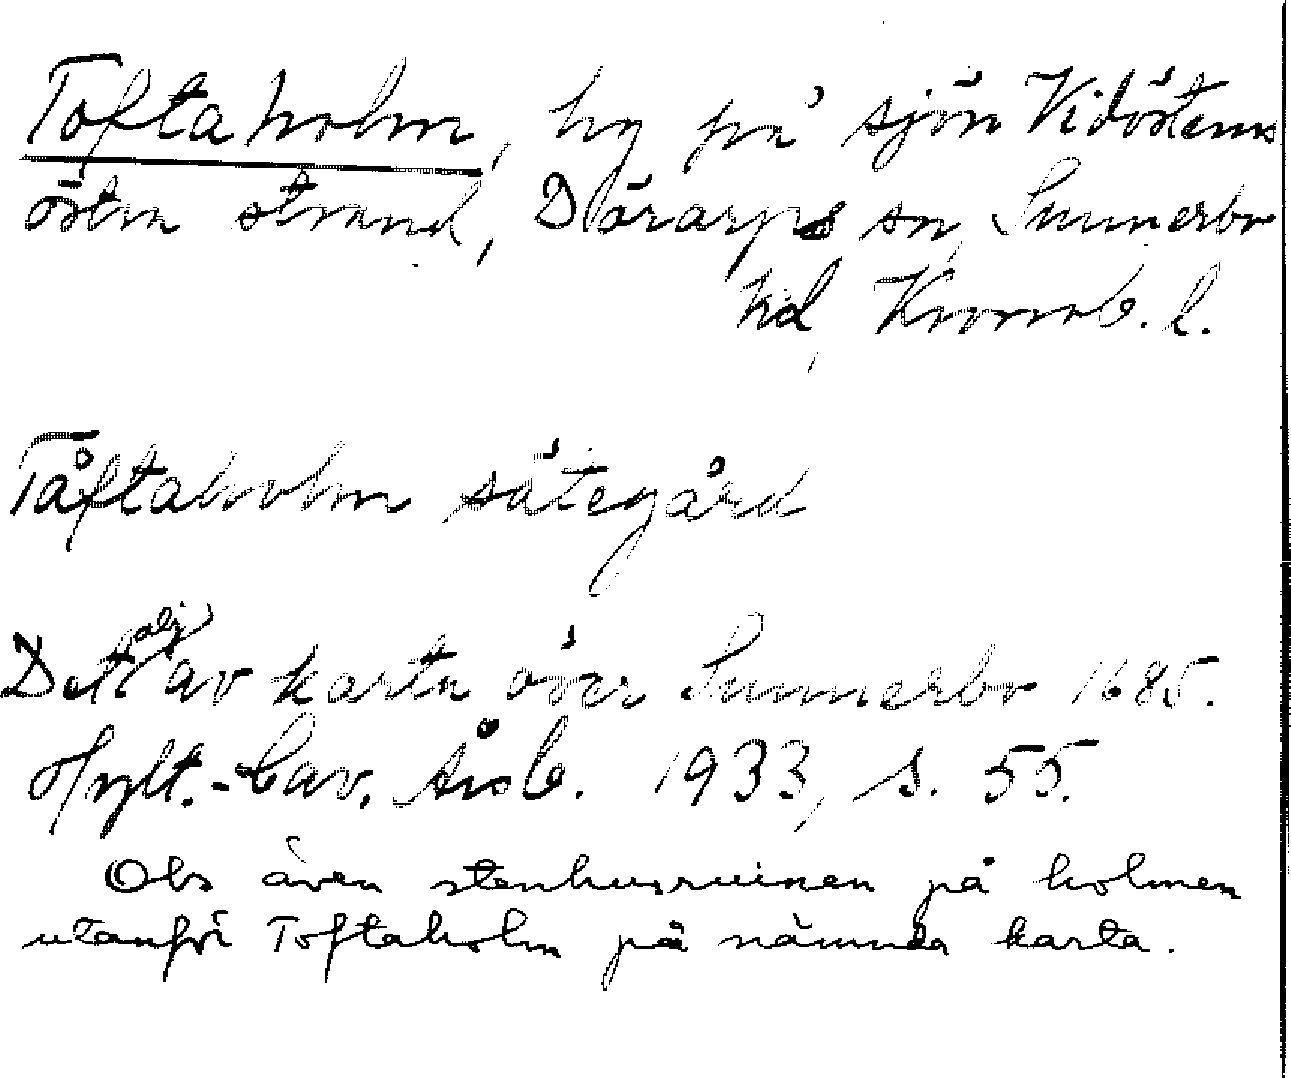 Toftaholm, hg på sjön Vidösterns
östra strand, Dörarps sn, Sunnerbo
hd, Kronob. l.
Tåftaholm sätegård
Detalj av karta över Sunnerbo 1685.
Hylt.-Cav. Årsb. 1933, s. 55.
Obs även stenhusruinen på holmen
utanför Toftaholm på nämnda karta.